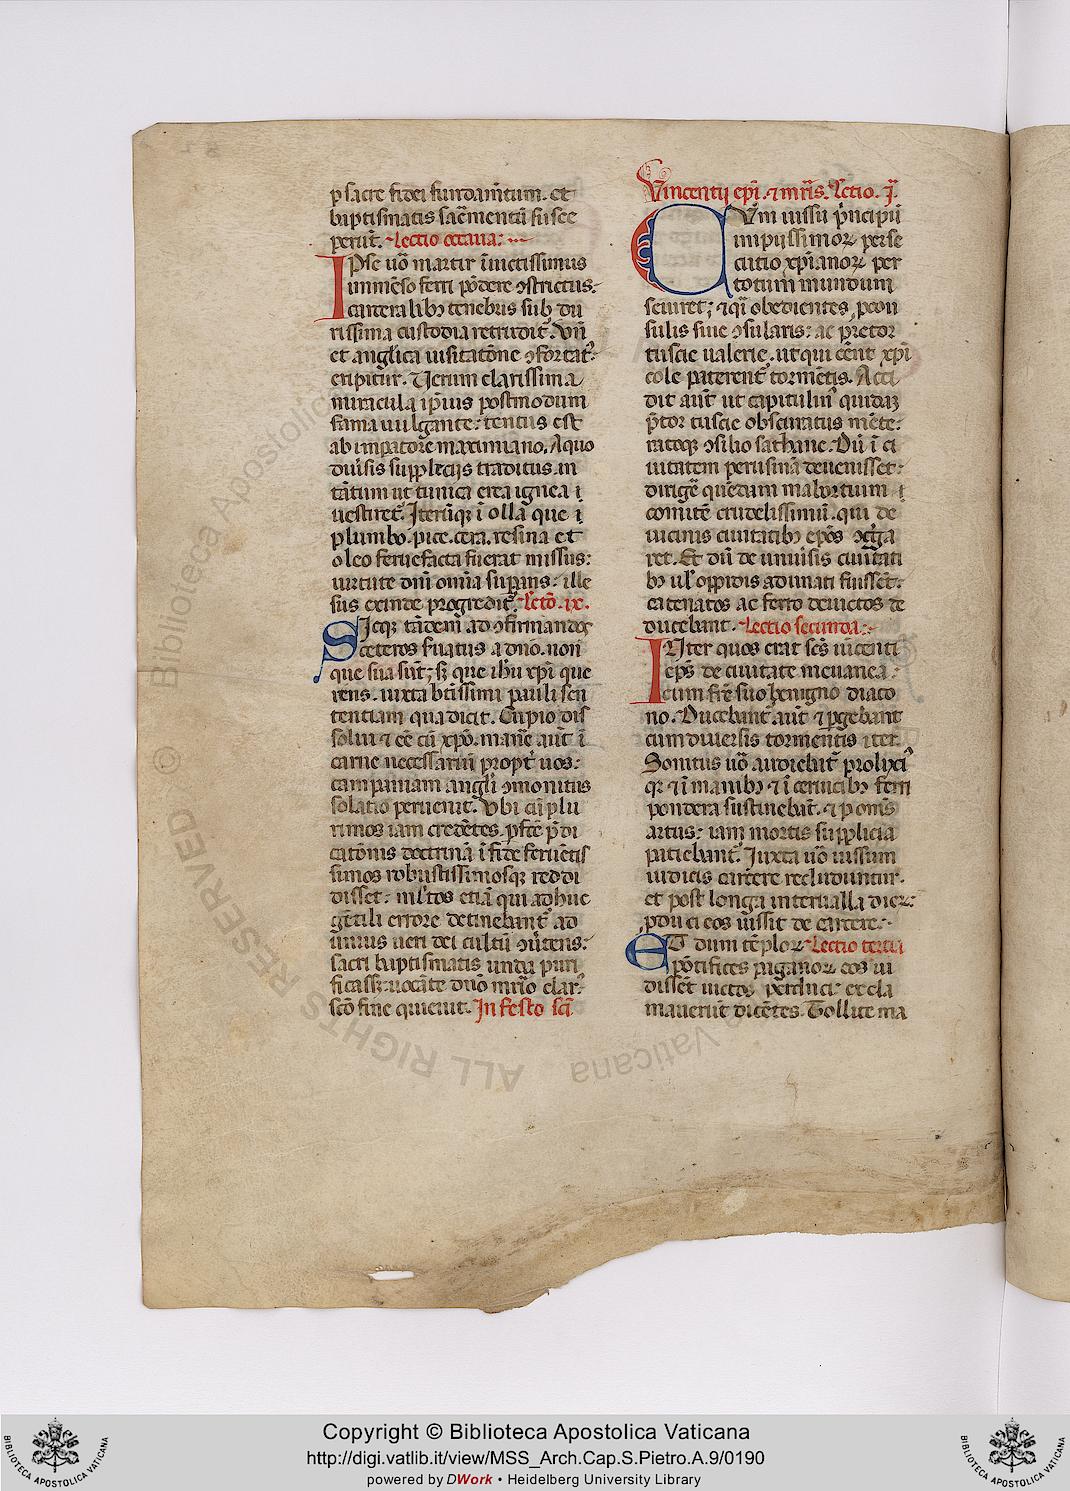 p sacre fidei fundam̄tum. et
baptismatis sac̄mentū susce
perūt. Lectio octaua:
IPse uō martir īuictissimus
immēso ferri pōdere ɔstrictus:
carceralibꝫ tenebris sub du
rissima custodia retrudit᷑. Vn̄
et anglica uisitatōne ɔfortat᷑:
eripitur. Verum clarissima
miracula ip̄ius postmodum
fama uulgante: tentus est
ab impatore maximiano. A quo
diūsis supplicijs traditus. in
tātum ut tunica erea ignea i
uestiret᷑. Iterūqꝫ ī olla que i
plumbo. pice. cera. resina et
oleo feruefacta fuerat missus:
uirtute dn̄i om̄ia supans: ille
sus exinde progredit᷑. Lc̄tō. ix.
SIcqꝫ tādem ad ɔfirmandos
ceteros fuatus a dn̄o. non
que sua sūt; sꝫ que ih̄u xp̄i que
rens. iuxta btīssimi pauli sen
tentiam qua dicit. Cupio dis
solui ⁊ eē cū xp̄o. man̄e aūt ī
carne necessariū propt᷑ uos:
campaniam angli ɔmonitus
solatio peruenit. Vbi cū plu
rimos iam credētes. pfcē p̄di
catōnis doctrinā ī fide feruētis
simos robustissimosqꝫ reddi
disset: ml̄tos etiā qui adhuc
gētili errore detinebant᷑ ad
unius ueri dei cultū ɔūtens:
sacri baptismatis unda puri
ficasꝫ: uocāte dn̄o mr̄io clar᷑:
scō fine quieuit. In festo sc̄i
Vincentij ep̄i. ⁊ mr̄is. Lc̄tio. j̄.
CVm iussu p̄ncipū
impiissimoꝝ perse
cutio xp̄ianoꝝ per
totum mundum
seuiret; ⁊ q̄i obedientes pcon
sulis siue ɔsularis: ac pretor
tuscie ualerie. ut qui cēnt xp̄i
cole paterent᷑ tormētis. Acci
dit aūt ut capitulinꝰ quidaꝫ
p̄tor tuscie obscuratus mēte:
ratoqꝫ ɔsilio sathane. Dū ī ci
uitatem perusinā deuenisset:
dirige quēdam maluortium i
comitē crudelissimū. qui de
uicinis ciuitatibꝫ ep̄os ɔg̓ga
ret. Et dū de uniūsis ciuitati
bꝫ ul᷑ oppidis adunati fuissēt:
catenatos ac ferro deuictos te
ducebant. Lectio secunda:
INter quos erat sc̄s uīcenti
ep̄s de ciuitate meuanea:
cum fr̄e suo benigno diaco
no. Ducebant᷑ aūt ⁊ pgebant
cum diuersis tormentis iter.
Sonitus uō audiebat᷑ prolixi᷑
qꝫ ⁊ ī manibꝫ ⁊ ī ceruicibꝫ ferri
pondera sustinebāt. ⁊ p om̄s
artus: iam mortis supplicia
patiebant᷑. Iuxta uō iussum
iudicis carcere recluduntur.
et post longa interualla dieꝝ:
pduci eos iussit de carcere:
ET dum tēploꝝ Lectio tertia
pōtifices paganoꝝ eos ui
disset uictos perduci: excla
mauerūt dicētes. Tollite ma
Copyright © Biblioteca Apostolica Vaticana
http://digi.vatlib.it/view/MSS_Arch.Cap.S.Pietro.A.9/0190
powered by DWork • Heidelberg University Library
BIBLIOTECA APOSTOLICA VATICANA
BIBLIOTECA APOSTOLICA VATICANA
© Biblioteca Apostolica Vaticana
ALL RIGHTS RESERVED